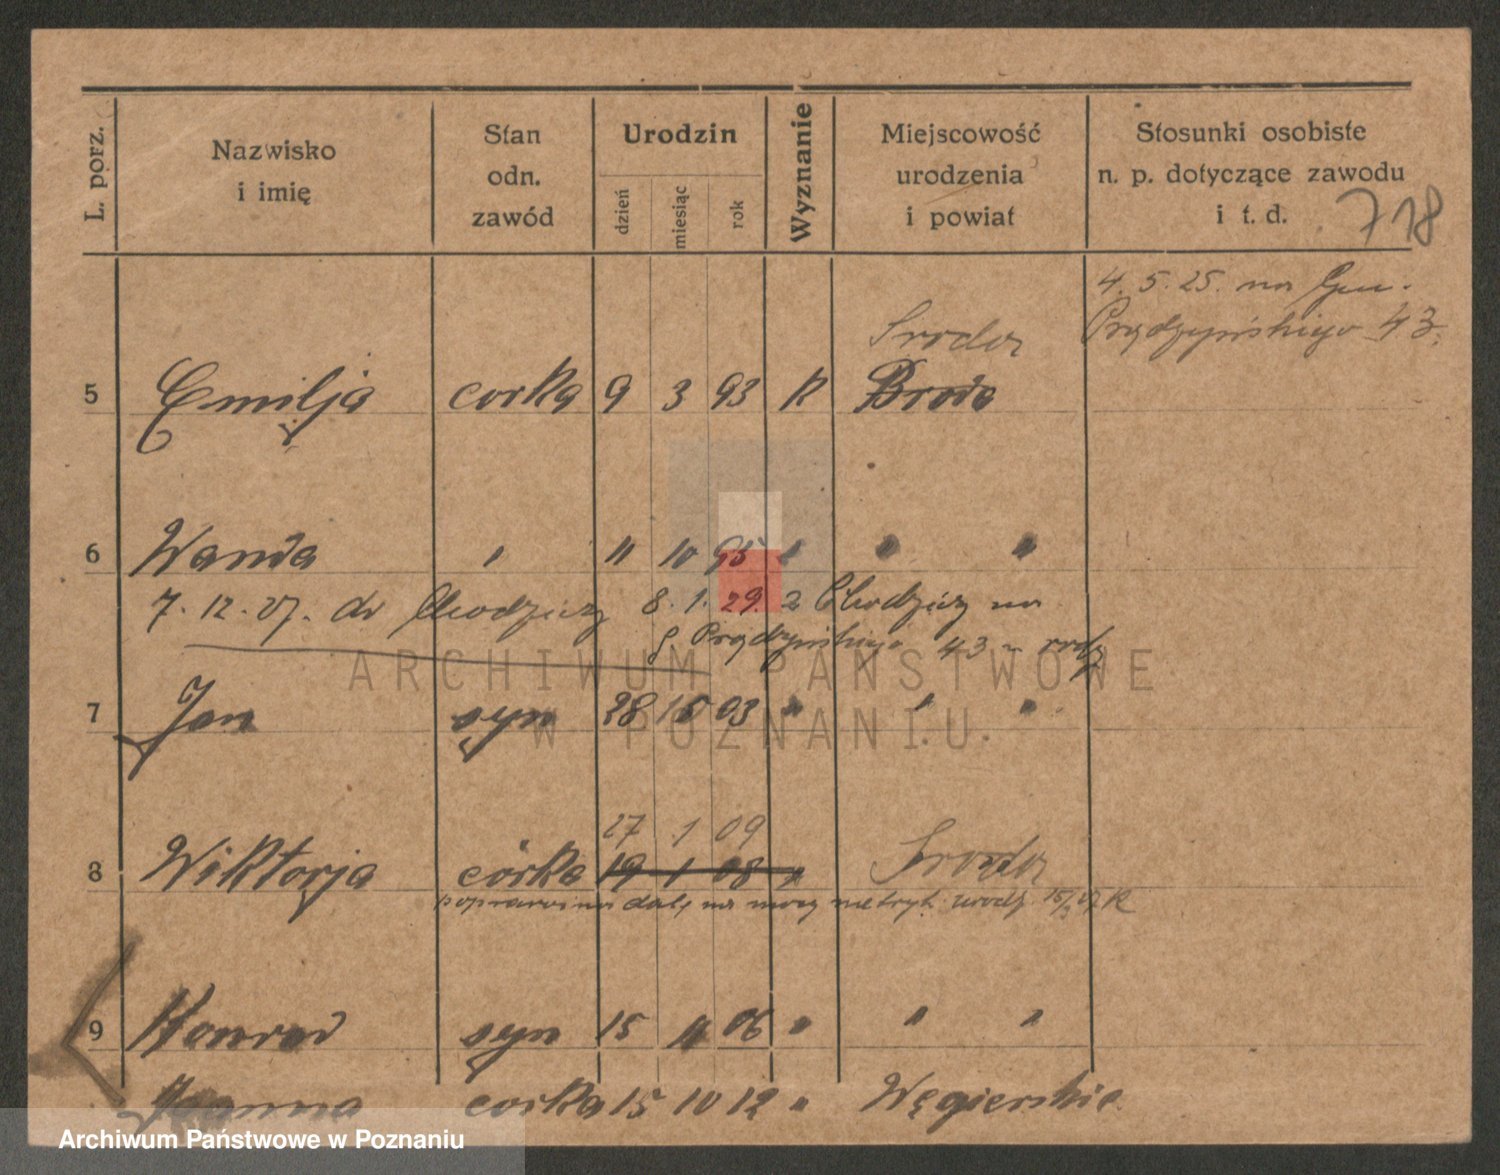 L. porz.
Nazwisko
i imię
Stan
odn.
zawód
Urodzin
dzień
miesiąc
rok
Wyznanie
Miejscowość
urodzenia
i powiat
Stosunki osobiste
n. p. dotyczące zawodu
i t. d.
718
4. 5. 25. na Gen.
Prądzyńskiego 43.
Sroda
5 Emilja corka 9 3 93 K Broda
6 Wanda " 11 10 95 " " "
7. 12. 27. do Chodzieży 8. 1. 29. z Chodzieży na
g. Prądzyńskiego 43 u rodz
7 Jan syn 28 10 03 " " "
27 1 09
8 Wiktorja córka 19 1 08 " Sroda
poprawiono datę na mocy metryk. urodz.
9 Konrad syn 15 11 06 " " "
Joanna corka 15 10 12 " Węgierskie
ARCHIWUM PAŃSTWOWE
W POZNANIU
Archiwum Państwowe w Poznaniu